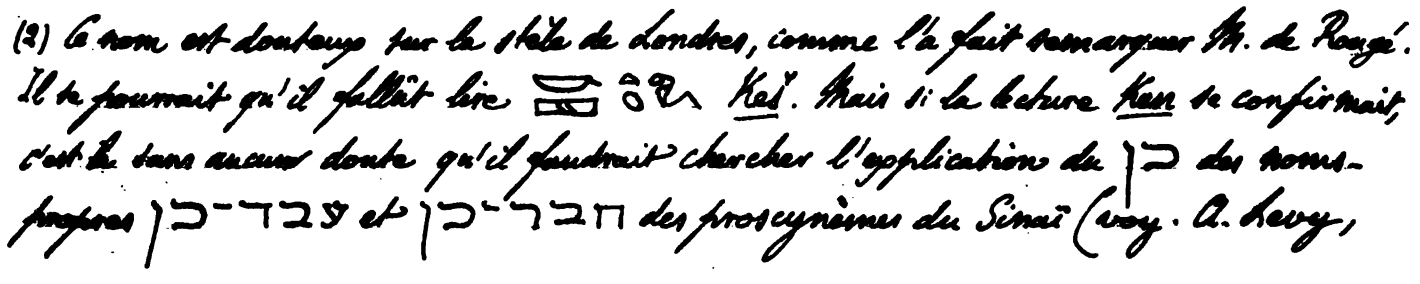 (2) Ce nom est douteux sur la stèle de Londres, comme l'a fait remarquer M. de Rougé.
Il se pourrait qu'il fallût lire Keš. Mais si la lecture Ken se confirmait,
c'est là sans aucun doute qu'il faudrait chercher l'explication du כן des noms-
propres עבד-כן et חבר-כן des proscynèmes du Sinaï (voy. A. Levy,